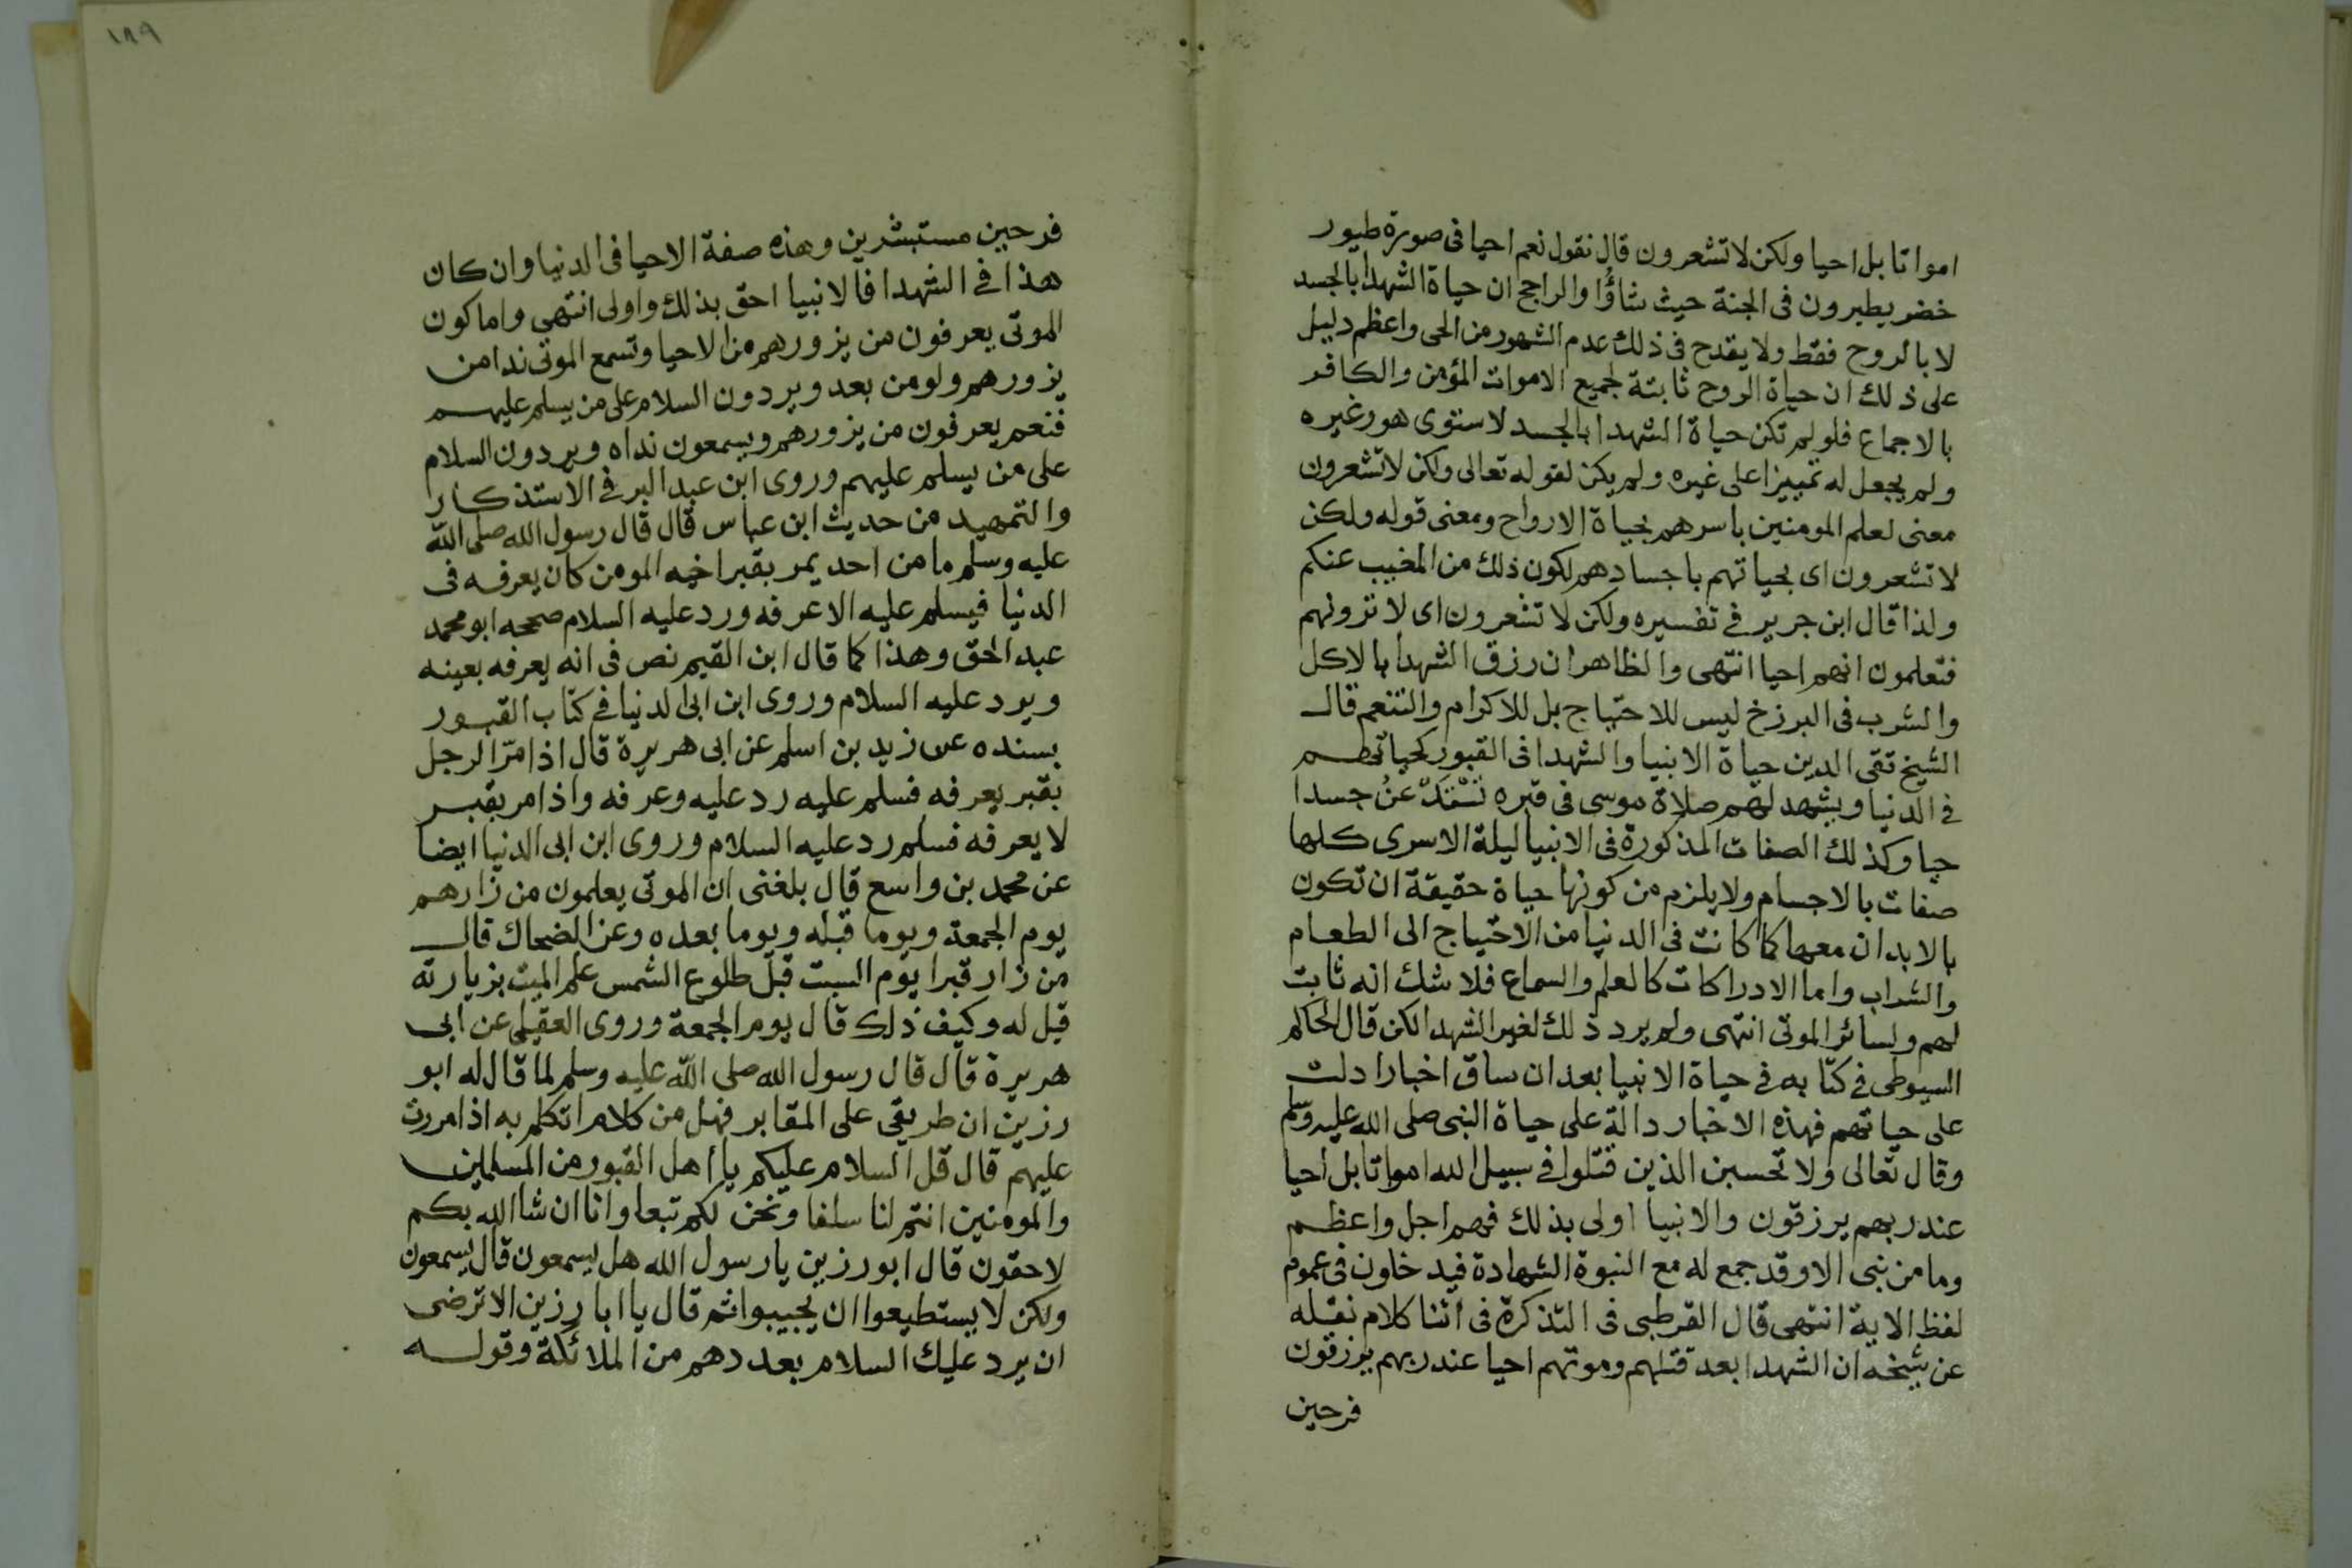 امواتا بل احيا ولكن لا تشعرون قال نقول نعم احيا فى صورة طيور
خضر يطيرون فى الجنة حيث شاؤُا والراجح ان حياة الشهدا بالجسد
لا بالروح فقط ولا يقدح فى ذلك عدم الشهور من الحى واعظم دليل
على ذلك ان حياة الروح ثابتة لجميع الاموات المؤمن والكافر
بالاجماع فلو لم تكن حياة الشهدا بالجسد لاستوى هو وغيره
ولم يجعل له تمييزا على غيره ولم يكن لقوله تعالى ولكن لا تشعرون
معنى لعلم المومنين باسرهم بحياة الارواح ومعنى قوله ولكن
لا تشعرون اى بحياتهم باجسادهم لكون ذلك من المغيب عنكم
ولذا قال ابن جرير فى تفسيره ولكن لا تشعرون اى لا ترونهم
فتعلمون انهم احيا انتهى والظاهر ان رزق الشهدا بالاكل
والشرب فى البرزخ ليس للاحتياج بل للاكرام والتنعم قال
الشيخ تقى الدين حياة الانبيا والشهدا فى القبور كحياتهم
فى الدنيا ويشهد لهم صلاة موسى فى قبره جسدا
حيا وكذلك الصفات المذكورة فى الانبيا ليلة الاسرى كلها
صفات بالاجسام ولا يلزم من كونها حياة حقيقة ان تكون
بالابدان معها كما كانت فى الدنيا من الاحتياج الى الطعام
والشراب واما الادراكات كالعلم والسماع فلا شك انه ثابت
لهم ولسائر الموتى انتهى ولم يرد ذلك لغير الشهدا لكن قال الحاكم
السيوطى فى كتابه فى حياة الانبيا بعد ان ساق اخبارا دلت
على حياتهم فهذه الاخبار دالة على حياة النبى صلى الله عليه وسلم
وقال تعالى ولا تحسبن الذين قتلوا فى سبيل الله امواتا بل احيا
عند ربهم يرزقون والانبيا اولى بذلك فهم اجل واعظم
وما من نبى الا وقد جمع له مع النبوة الشهادة فيدخلون فى عموم
لفظ الاية انتهى قال القرطبى فى التذكرة فى اثنا كلام نقله
عن شيخه ان الشهدا بعد قتلهم وموتهم احيا عند ربهم يرزقون
فرحين
١٨٩
فرحين مستبشرين وهذه صفة الاحيا فى الدنيا وان كان
هذا فى الشهدا فالانبيا احق بذلك واولى انتهى واما كون
الموتى يعرفون من يزورهم من الاحيا وتسمع الموتى ندا من
يزورهم ولو من بعد ويردون السلام على من يسلم عليهم
فنعم يعرفون من يزورهم ويسمعون نداه ويردون السلام
على من يسلم عليهم وروى ابن عبد البر فى الاستذكار
والتمهيد من حديث ابن عباس قال قال رسول الله صلى الله
عليه وسلم ما من احد يمر بقبر اخيه المومن كان يعرفه فى
الدنيا فيسلم عليه الا عرفه ورد عليه السلام صححه ابو محمد
عبد الحق وهذا كما قال ابن القيم نص فى انه يعرفه بعينه
ويرد عليه السلام وروى ابن ابى الدنيا فى كتاب القبور
بسنده عن زيد بن اسلم عن ابى هريرة قال اذا مرّ الرجل
بقبر يعرفه فسلم عليه رد عليه وعرفه واذا مر بقبر
لا يعرفه فسلم رد عليه السلام وروى ابن ابى الدنيا ايضا
عن محمد بن واسع قال بلغنى ان الموتى يعلمون من زارهم
يوم الجمعة ويوما قبله ويوما بعده وعن الضحاك قال
من زار قبرا يوم السبت قبل طلوع الشمس علم الميت بزيارته
قيل له وكيف ذلك قال يوم الجمعة وروى العقيلى عن ابى
هريرة قال قال رسول الله صلى الله عليه وسلم لما قال له ابو
رزين ان طريقى على المقابر فهل من كلام اتكلم به اذا مررت
عليهم قال قل السلام عليكم يا اهل القبور من المسلمين
والمومنين انتم لنا سلفا ونحن لكم تبعا وانا ان شا الله بكم
لاحقون قال ابو رزين يا رسول الله هل يسمعون قال يسمعون
ولكن لا يستطيعوا ان يجيبوا ثم قال يا ابا رزين الا ترضى
ان يرد عليك السلام بعددهم من الملائكة وقوله